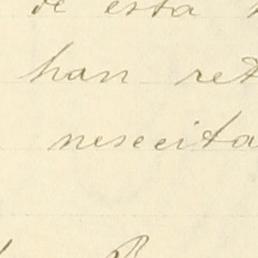 de esta
han ret
neseeita